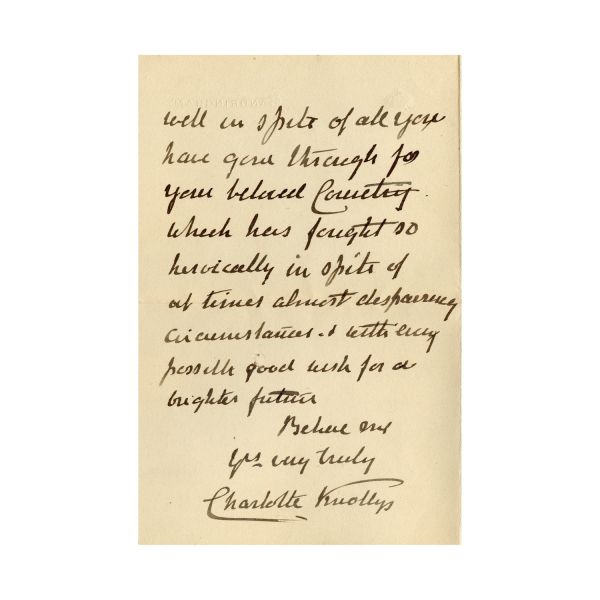 well in spite of all you
have gone through for
your beloved Country
which has fought so
heroically in spite of
at times almost despairing
circumstances. & with every
possible good wish for a
brighter future
Believe me
Yrs very truly
Charlotte Knollys